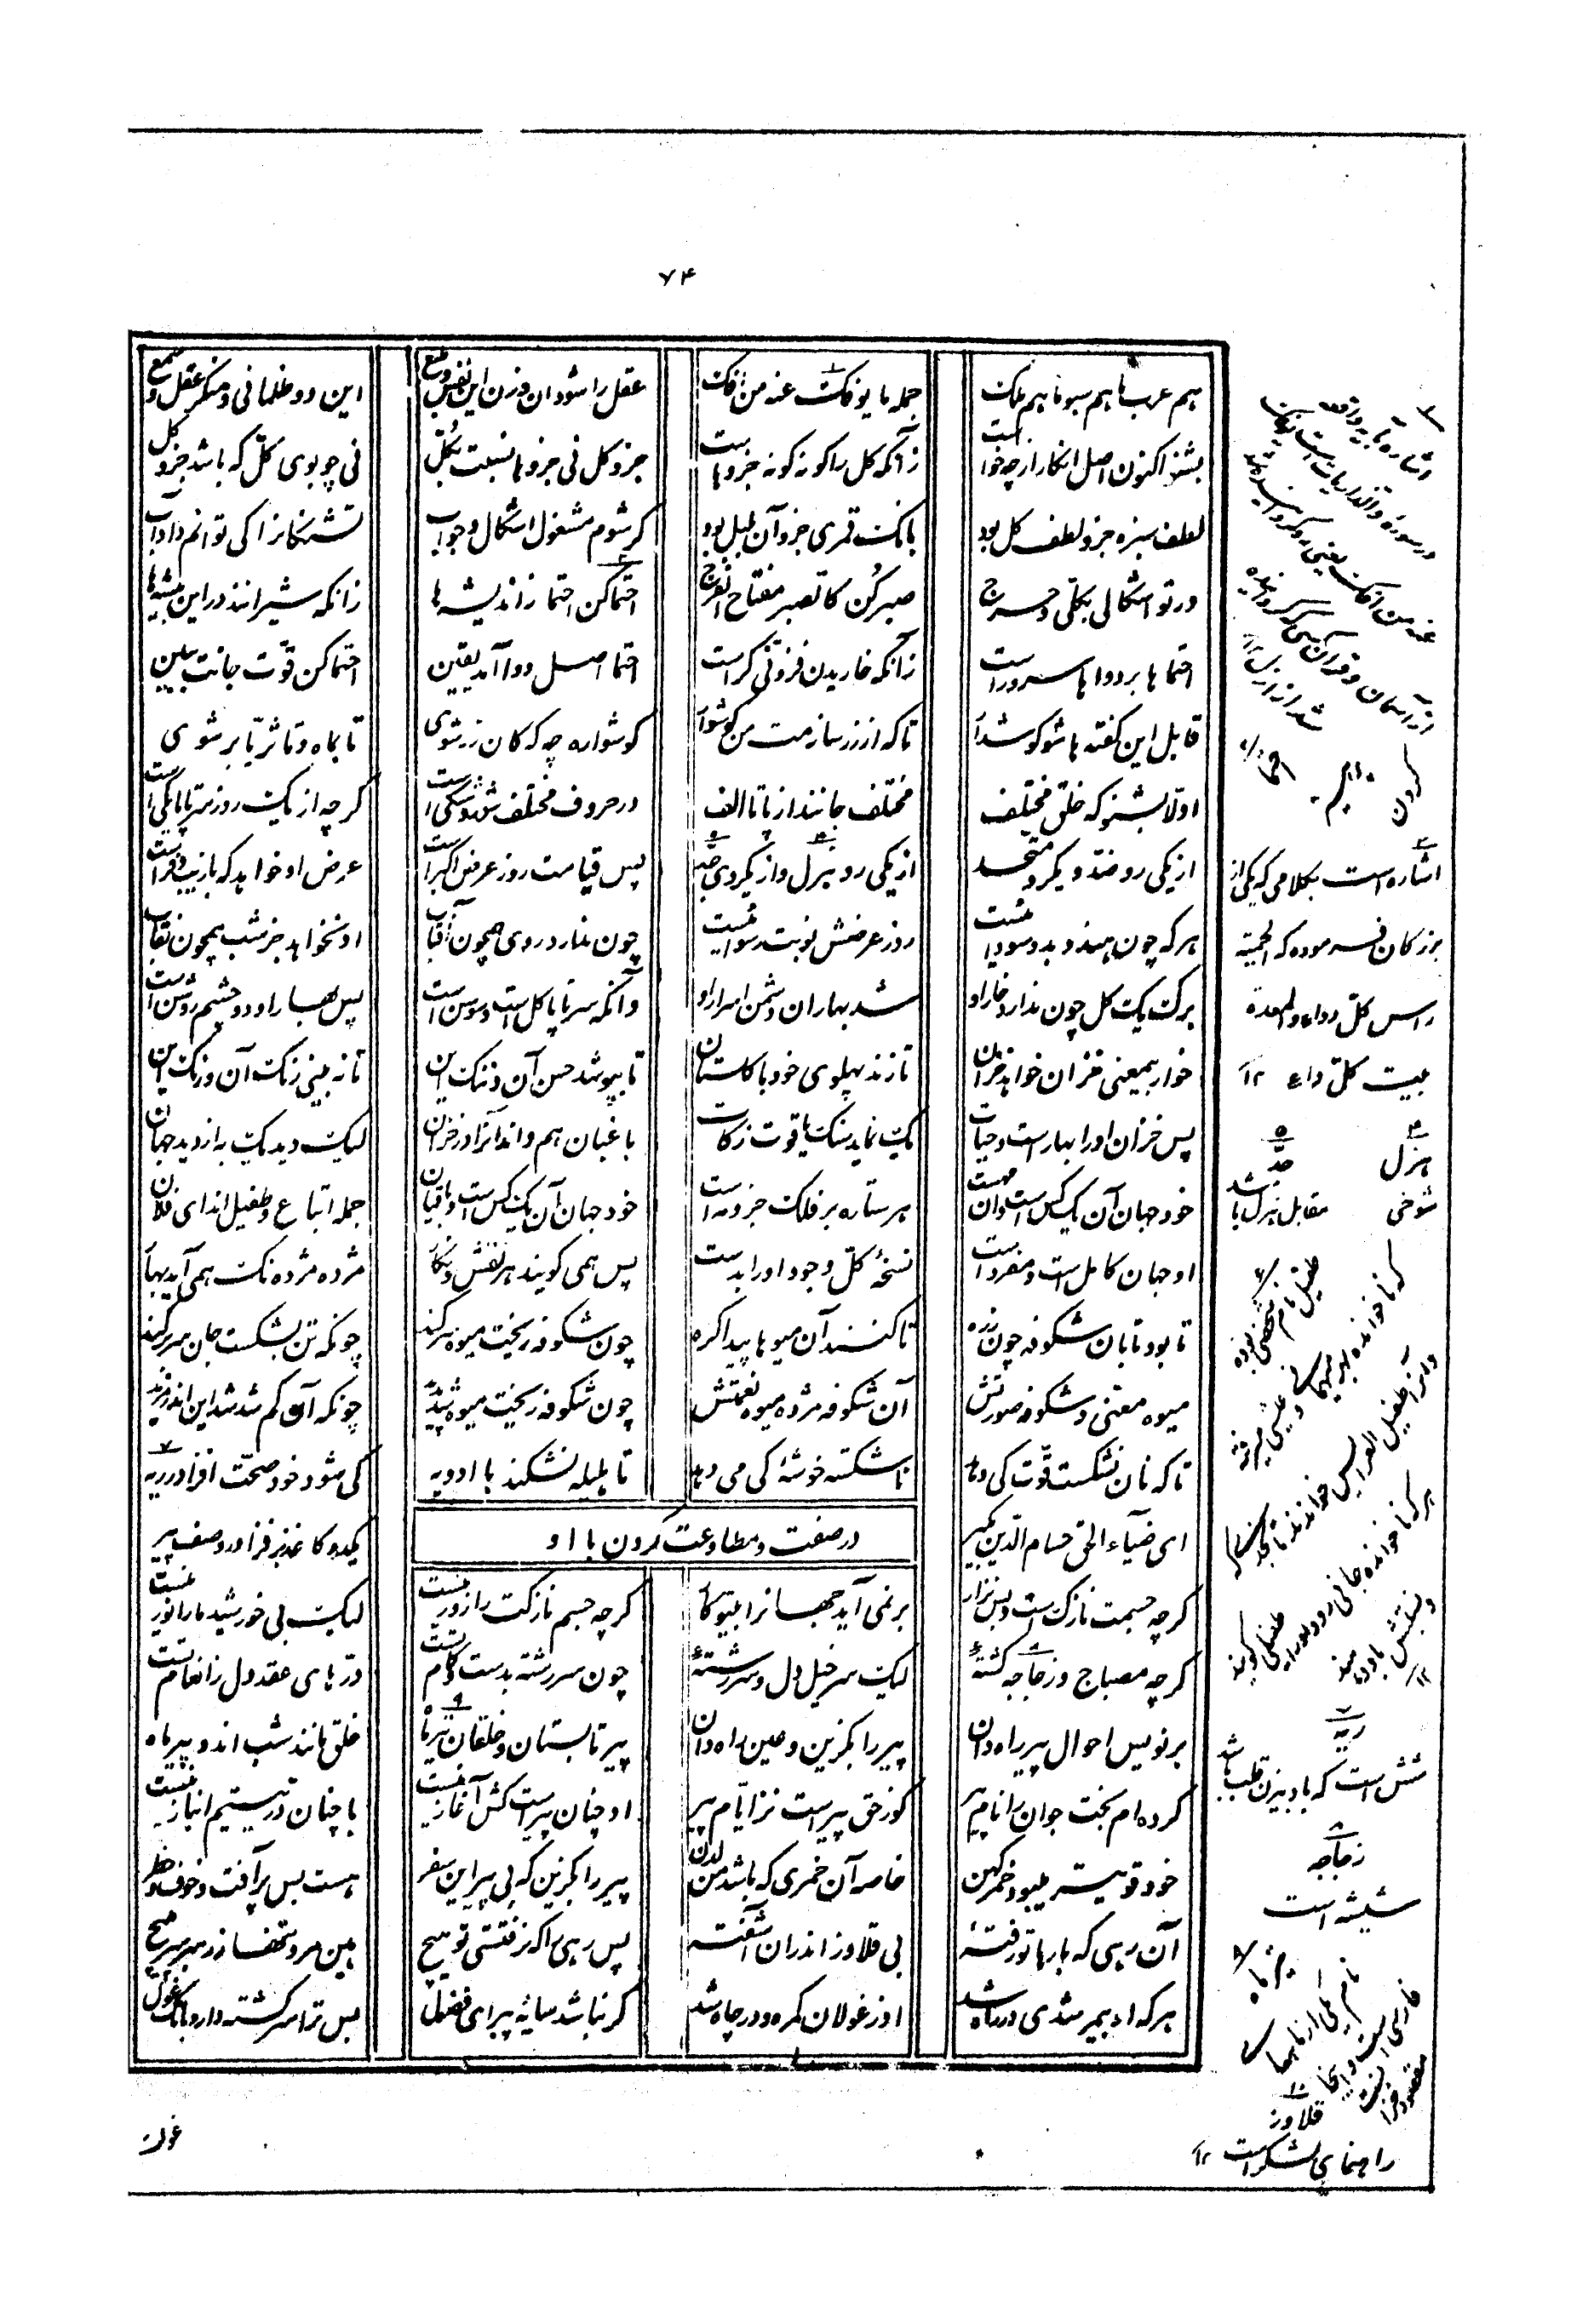 ۷۴
هم عرب ما هم سبو ما هم ملک
جمله ما یؤفک عنه من افک
عقل را شو دان و زن این نفس و طمع
این دو ظلمانی و منکر عقل شمع
بشنو اکنون اصل انکار از چه خاست
زآنکه کل را گونه گونه جزوهاست
جزو کل نی جزوها نسبت بکل
نی چو بوی گل که باشد جزو گل
لطف سبزه جزو لطف گل بود
بانگ قمری جزو آن بلبل بود
گر شوم مشغول اشکال و جواب
تشنگانرا کی توانم داد آب
ور تو اشکالی بکلی و حرج
صبر کن کالصبر مفتاح الفرج
احتما کن احتما ز اندیشه‌ها
زانکه شیرانند در این بیشه‌ها
احتماها بر دواها سرورست
زانکه خاریدن فزونی گرست
احتما اصل دوا آمد یقین
احتما کن قوت جانت ببین
قابل این گفته‌ها شو گوشدار
تا که از زر سازمت من گوشوار
گوشواره چه که کان زر شوی
تا بماه و تا ثریا بر شوی
اولا بشنو که خلق مختلف
مختلف جانند از یا تا الف
در حروف مختلف شور و شکی است
گرچه از یک رو ز سر تا پا یکی است
از یکی رو ضد و یکرو متحد
از یکی رو هزل و از یکروی جد
پس قیامت روز عرض اکبر است
عرض او خواهد که با زیب و فر است
هر که چون هندو بد و سودائیست
روز عرضش نوبت رسوائیست
چون ندارد روی همچون آفتاب
او نخواهد جز شب همچون نقاب
برگ یک گل چون ندارد خار او
شد بهاران دشمن اسرار او
وآنکه سر تا پا گل است و سوسن است
پس بهار او را دو چشم روشن است
خار بیمعنی خزان خواهد خزان
تا زند پهلوی خود با گلستان
تا بپوشد حسن آن و ننگ این
تا نه بینی رنگ آن و زنگ این
پس خزان او را بهارست و حیات
یک نماید سنگ و یاقوت زکات
باغبان هم داند آنرا در خزان
لیک دید یک به از دید جهان
خود جهان آن یک کس است و آن مهست
هر ستاره بر فلک جزو مه است
خود جهان آن یک کس است و باقیان
جمله اتباع و طفیل اند ای فلان
او جهان کامل است و مفرد است
نسخهٔ کل وجود او را بدست
پس همی گویند هر نقش و نگار
مژده مژده نک همی آید بهار
تا بود تابان شکوفه چون زره
تا کنند آن میوها پیدا گره
چون شکوفه ریخت میوه سر کند
چونکه تن بشکست جان سر بر کند
میوه معنی و شکوفه صورتش
آن شکوفه مژده میوه نعمتش
چون شکوفه ریخت میوه شد پدید
چونکه آن کم شد شد این اندر مزید
تا که نان نشکست قوت کی دهد
ناشکسته خوشهٔ کی می دهد
تا هلیله نشکند با ادویه
کی شود خود صحت افزا در ریه
در صفت و مطاوعت کردن با او
ای ضیاء الحق حسام الدین بگیر
یکدو کاغذ بر فزا در وصف پیر
گرچه جسمت نازک است و بس نزار
بر نمی آید جهانرا بیتو کار
گرچه جسم نازکت را زور نیست
لیک بی خورشید ما را نور نیست
گرچه مصباح و زجاجه گشتهٔ
لیک سر خیل دل و سر رشتهٔ
چون سر رشته بدست و کام تست
درهای عقد دل ز انعام تست
بر نویس احوال پیر راه دان
پیر را بگزین و عین راه دان
پیر تابستان و خلقان تیر ماه
خلق مانند شب اند و پیر ماه
کرده ام بخت جوان را نام پیر
کو ز حق پیر است نز ایام پیر
او چنان پیر است کش آغاز نیست
با چنان در یتیم انباز نیست
خود قویتر میبود خمر کهن
خاصه آن خمری که باشد من لدن
پیر را بگزین که بی پیر این سفر
هست بس پر آفت و خوف و خطر
آن رهی که بارها تو رفتهٔ
بی قلاوز اندران آشفتهٔ
پس رهی را که نرفتستی تو هیچ
هین مرو تنها ز رهبر سر مپیچ
هر که او بی مرشدی در راه شد
او ز غولان گمره و در چاه شد
گر نباشد سایهٔ پیر ای فضول
بس ترا سرگشته دارد بانگ غول
اشاره است بکلامی که یکی از
بزرگان فرموده که الحمیة
راس کل دواء والمعدة
بیت کل داء ۱۲
هزل
شوخی
جد
مقابل هزل باشد
ریه
شش است که بادبیزن قلب باشد
زجاجه
شیشه است
تیر ماه
قلاوز
راهنمای لشکر است ۱۲
غولت